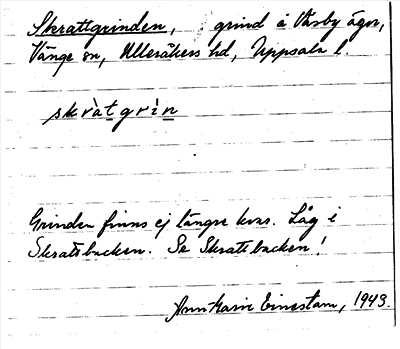 Skrattgrinden, grind å Väsby ägor,
Vänge sn, Ulleråkers hd, Uppsala l.
skràtgrìn
Grinden finns ej längre kvar. Låg i
Skrattbacken. Se Skrattbacken!
Ann-Karin Einestam, 1943.